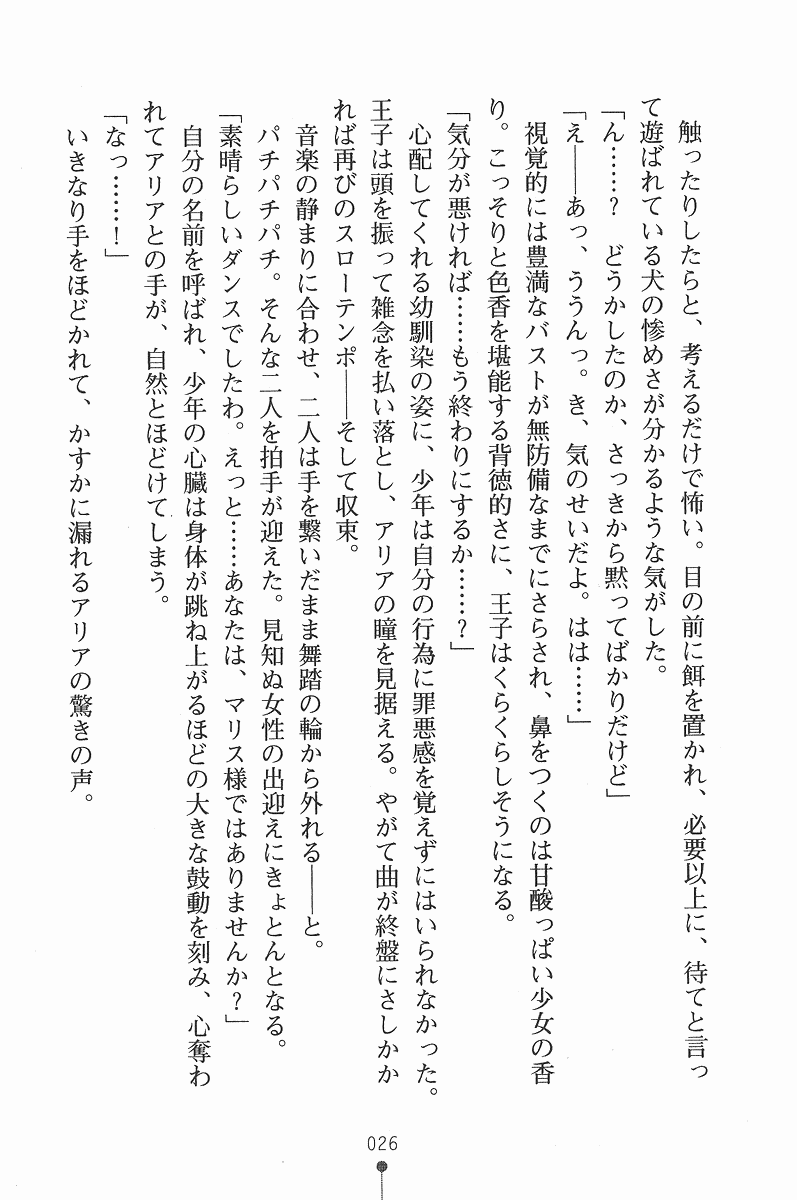 触ったりしたらと、考えるだけで怖い。目の前に餌を置かれ、必要以上に、待てと言っ
て遊ばれている犬の惨めさが分かるような気がした。
「ん……？　どうかしたのか、さっきから黙ってばかりだけど」
「え――あっ、ううんっ。き、気のせいだよ。はは……」
視覚的には豊満なバストが無防備なまでにさらされ、鼻をつくのは甘酸っぱい少女の香
り。こっそりと色香を堪能する背徳的さに、王子はくらくらしそうになる。
「気分が悪ければ……もう終わりにするか……？」
心配してくれる幼馴染の姿に、少年は自分の行為に罪悪感を覚えずにはいられなかった。
王子は頭を振って雑念を払い落とし、アリアの瞳を見据える。やがて曲が終盤にさしかか
れば再びのスローテンポ――そして収束。
音楽の静まりに合わせ、二人は手を繋いだまま舞踏の輪から外れる――と。
パチパチパチ。そんな二人を拍手が迎えた。見知ぬ女性の出迎えにきょとんとなる。
「素晴らしいダンスでしたわ。えっと……あなたは、マリス様ではありませんか？」
自分の名前を呼ばれ、少年の心臓は身体が跳ね上がるほどの大きな鼓動を刻み、心奪わ
れてアリアとの手が、自然とほどけてしまう。
「なっ……！」
いきなり手をほどかれて、かすかに漏れるアリアの驚きの声。
026